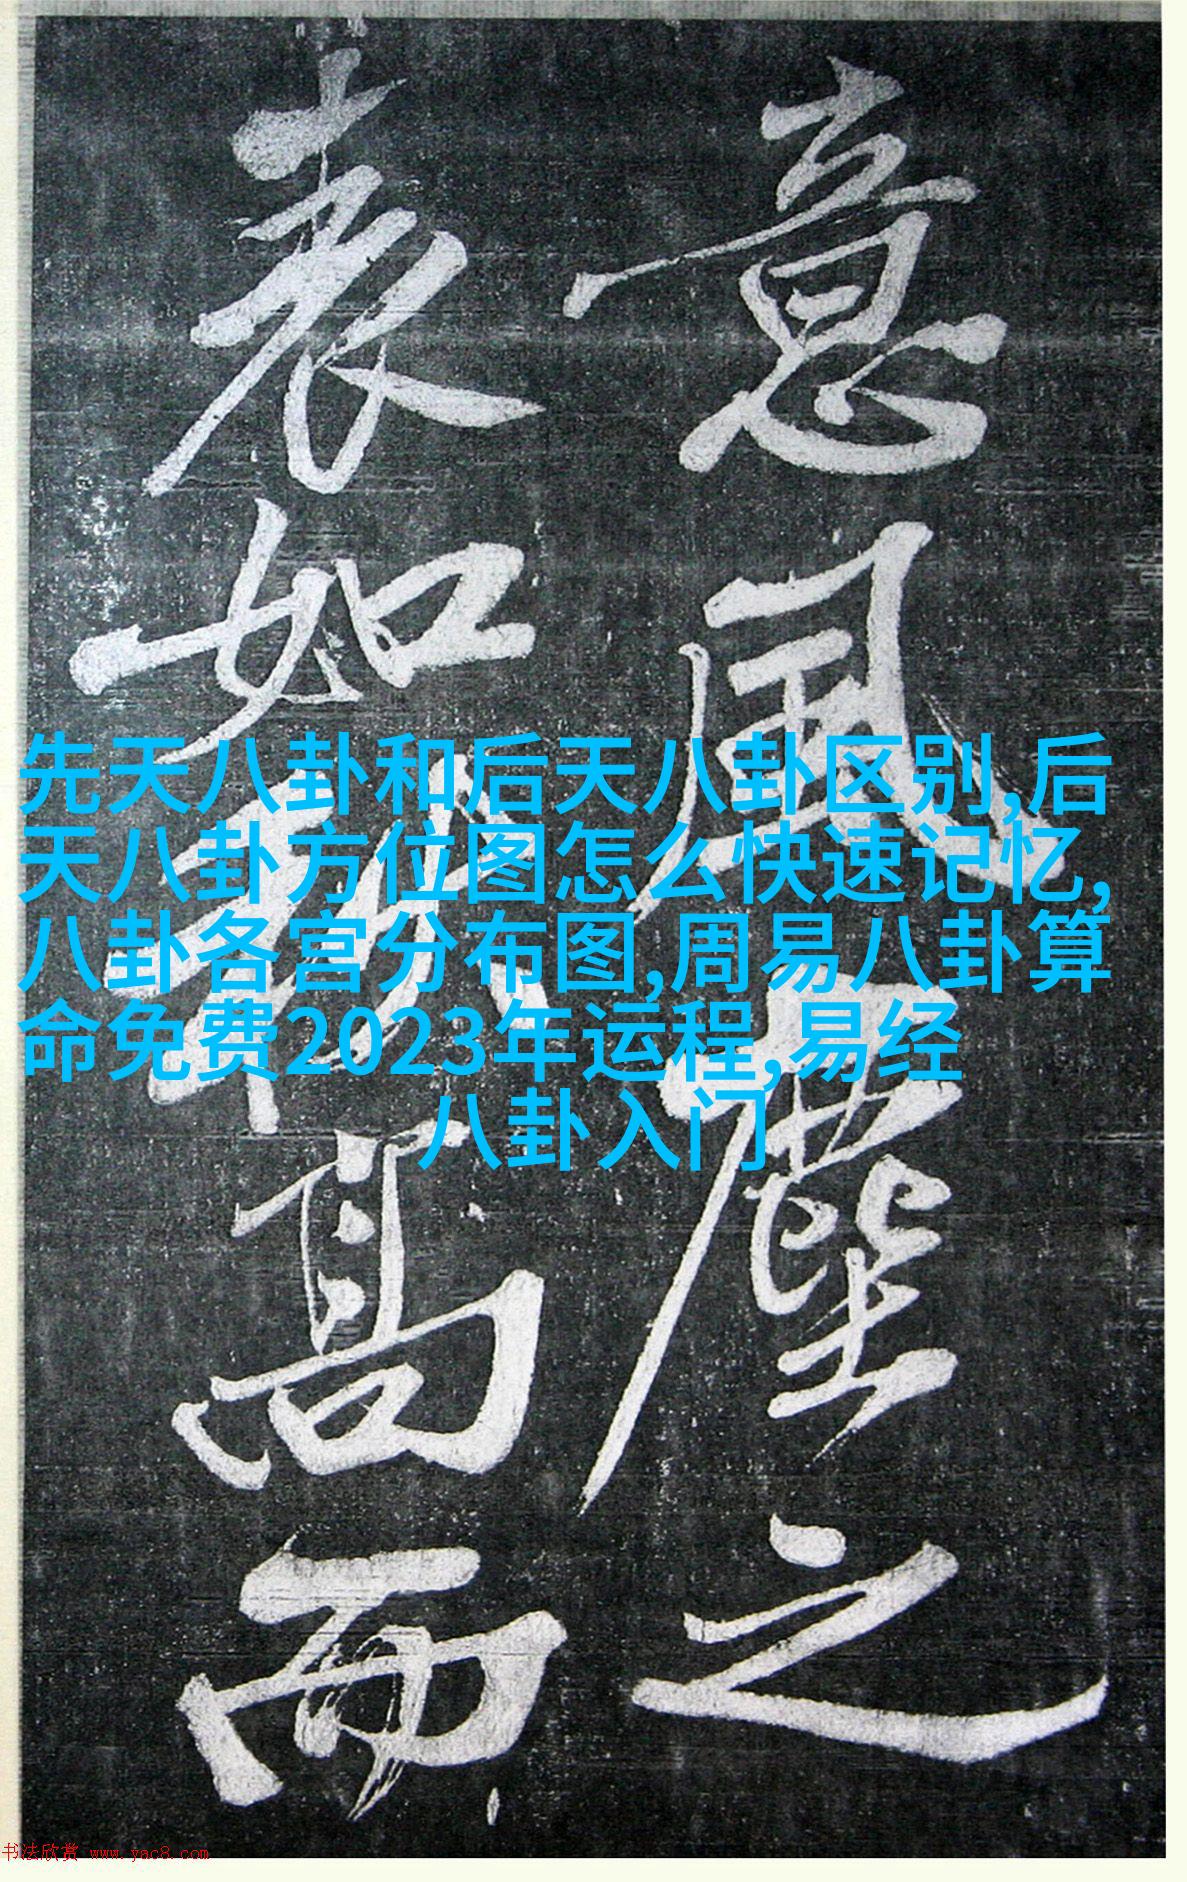 意風塵之
表如秋高而
先天八卦和后天八卦区别,后
天八卦方位图怎么快速记忆,
八卦各宫分布图,周易八卦算
命免费2023年运程,易经
八卦入门
书法欣赏 www.yac8.com